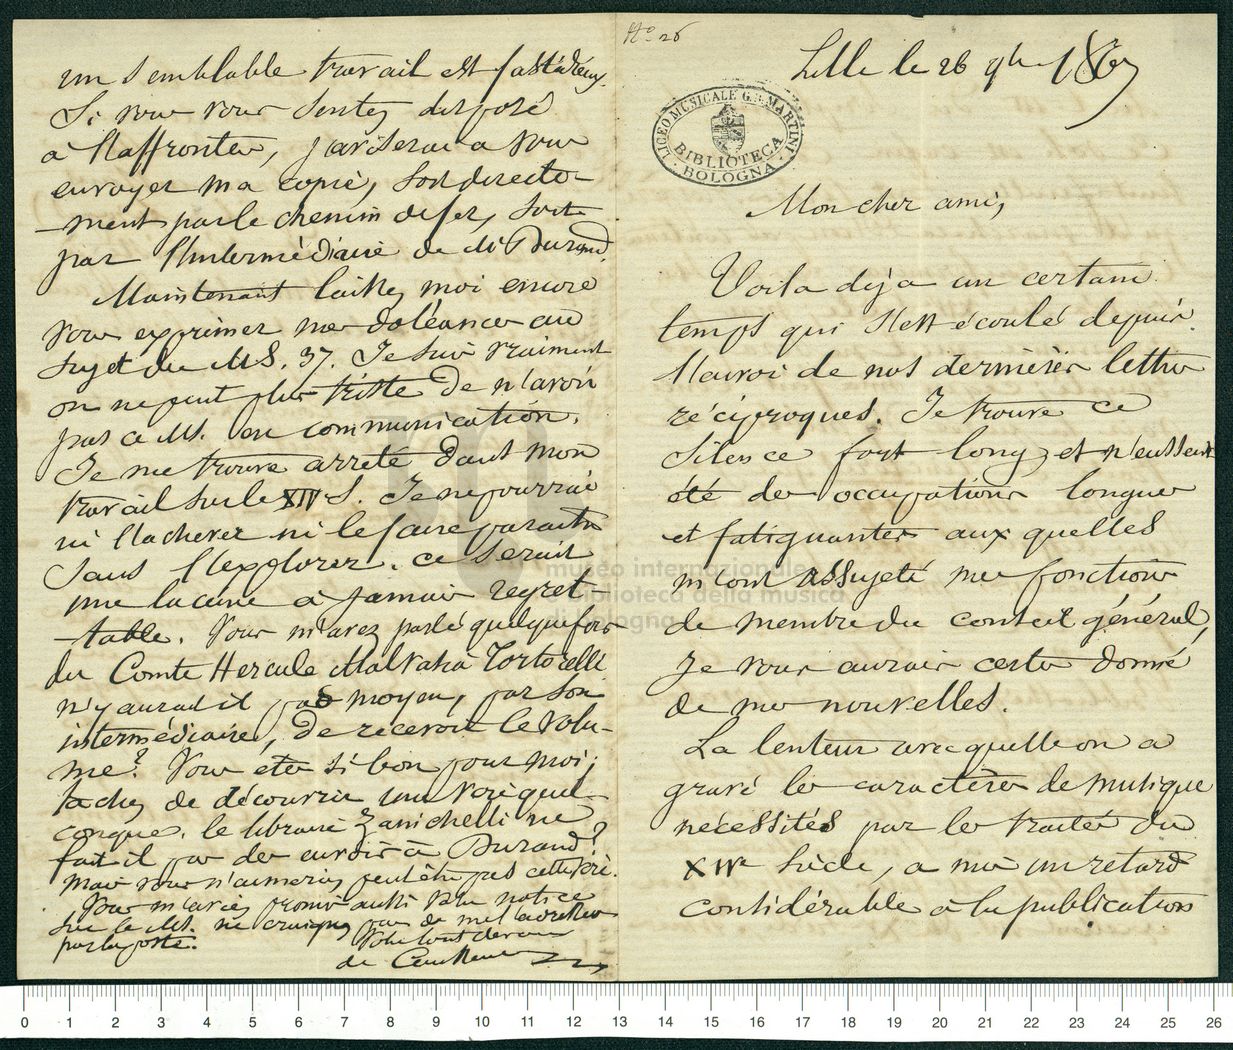 No 26
Lille le 26 9bre 1867
LICEO MUSICALE G.B. MARTINI
BIBLIOTECA
BOLOGNA
Mon cher ami,
Voila déja un certain
temps qui s'est écoulé depuis
l'envoi de nos dernières lettres
réciproques. Je trouve ce
silence fort long, et n'eussent
été des occupations longues
et fatiguantes aux quelles
m'ont assujeté mes fonctions
de membre du conseil général,
je vous aurais certes donné
de mes nouvelles.
La lenteur avec quelle on a
gravé les caractères de musique
nécessités par les traités du
XIVe siècle, a mis un retard
considérable à la publication
un semblable travail est fastidieux.
Si vous vous sentez disposé
à l'affronter, j'aviserai a vous
envoyer ma copie, soit directe-
-ment par le chemin de fer, soit
par l'intermédiaire de Mr Durand.
Maintenant laissez moi encore
vous exprimer mes doléances au
sujet du MS. 37. Je suis vraiment
on ne peut plus triste de n'avoir
pas ce MS. en communication.
Je me trouve arrêté dans mon
travail sur le XIV S. Je ne pourrai
ni l'achever ni le faire paraitre
sans l'explorer. ce serait
une lacune à jamais regret
-table. Vous m'avez parlé quelquefois
du Comte Hercule Malvasia Tortorelli
n'y aurait il pas moyen, par son
intermédiaire, de recevoir le volu-
me? Vous etes si bon pour moi,
tachez de découvrir une voie quel-
conque. le libraire Zanichelli ne
fait il pas des envois à Durand?
mais vous n'aimeriez peut être pas cette voie.
Vous m'aviez promis aussi une notice
sur le MS. ne craignez pas de me l'adresser
par la poste.
Votre tout dévoué
de Coussemaker
museo internazionale
e biblioteca della musica
di bologna
0 1 2 3 4 5 6 7 8 9 10 11 12 13 14 15 16 17 18 19 20 21 22 23 24 25 26